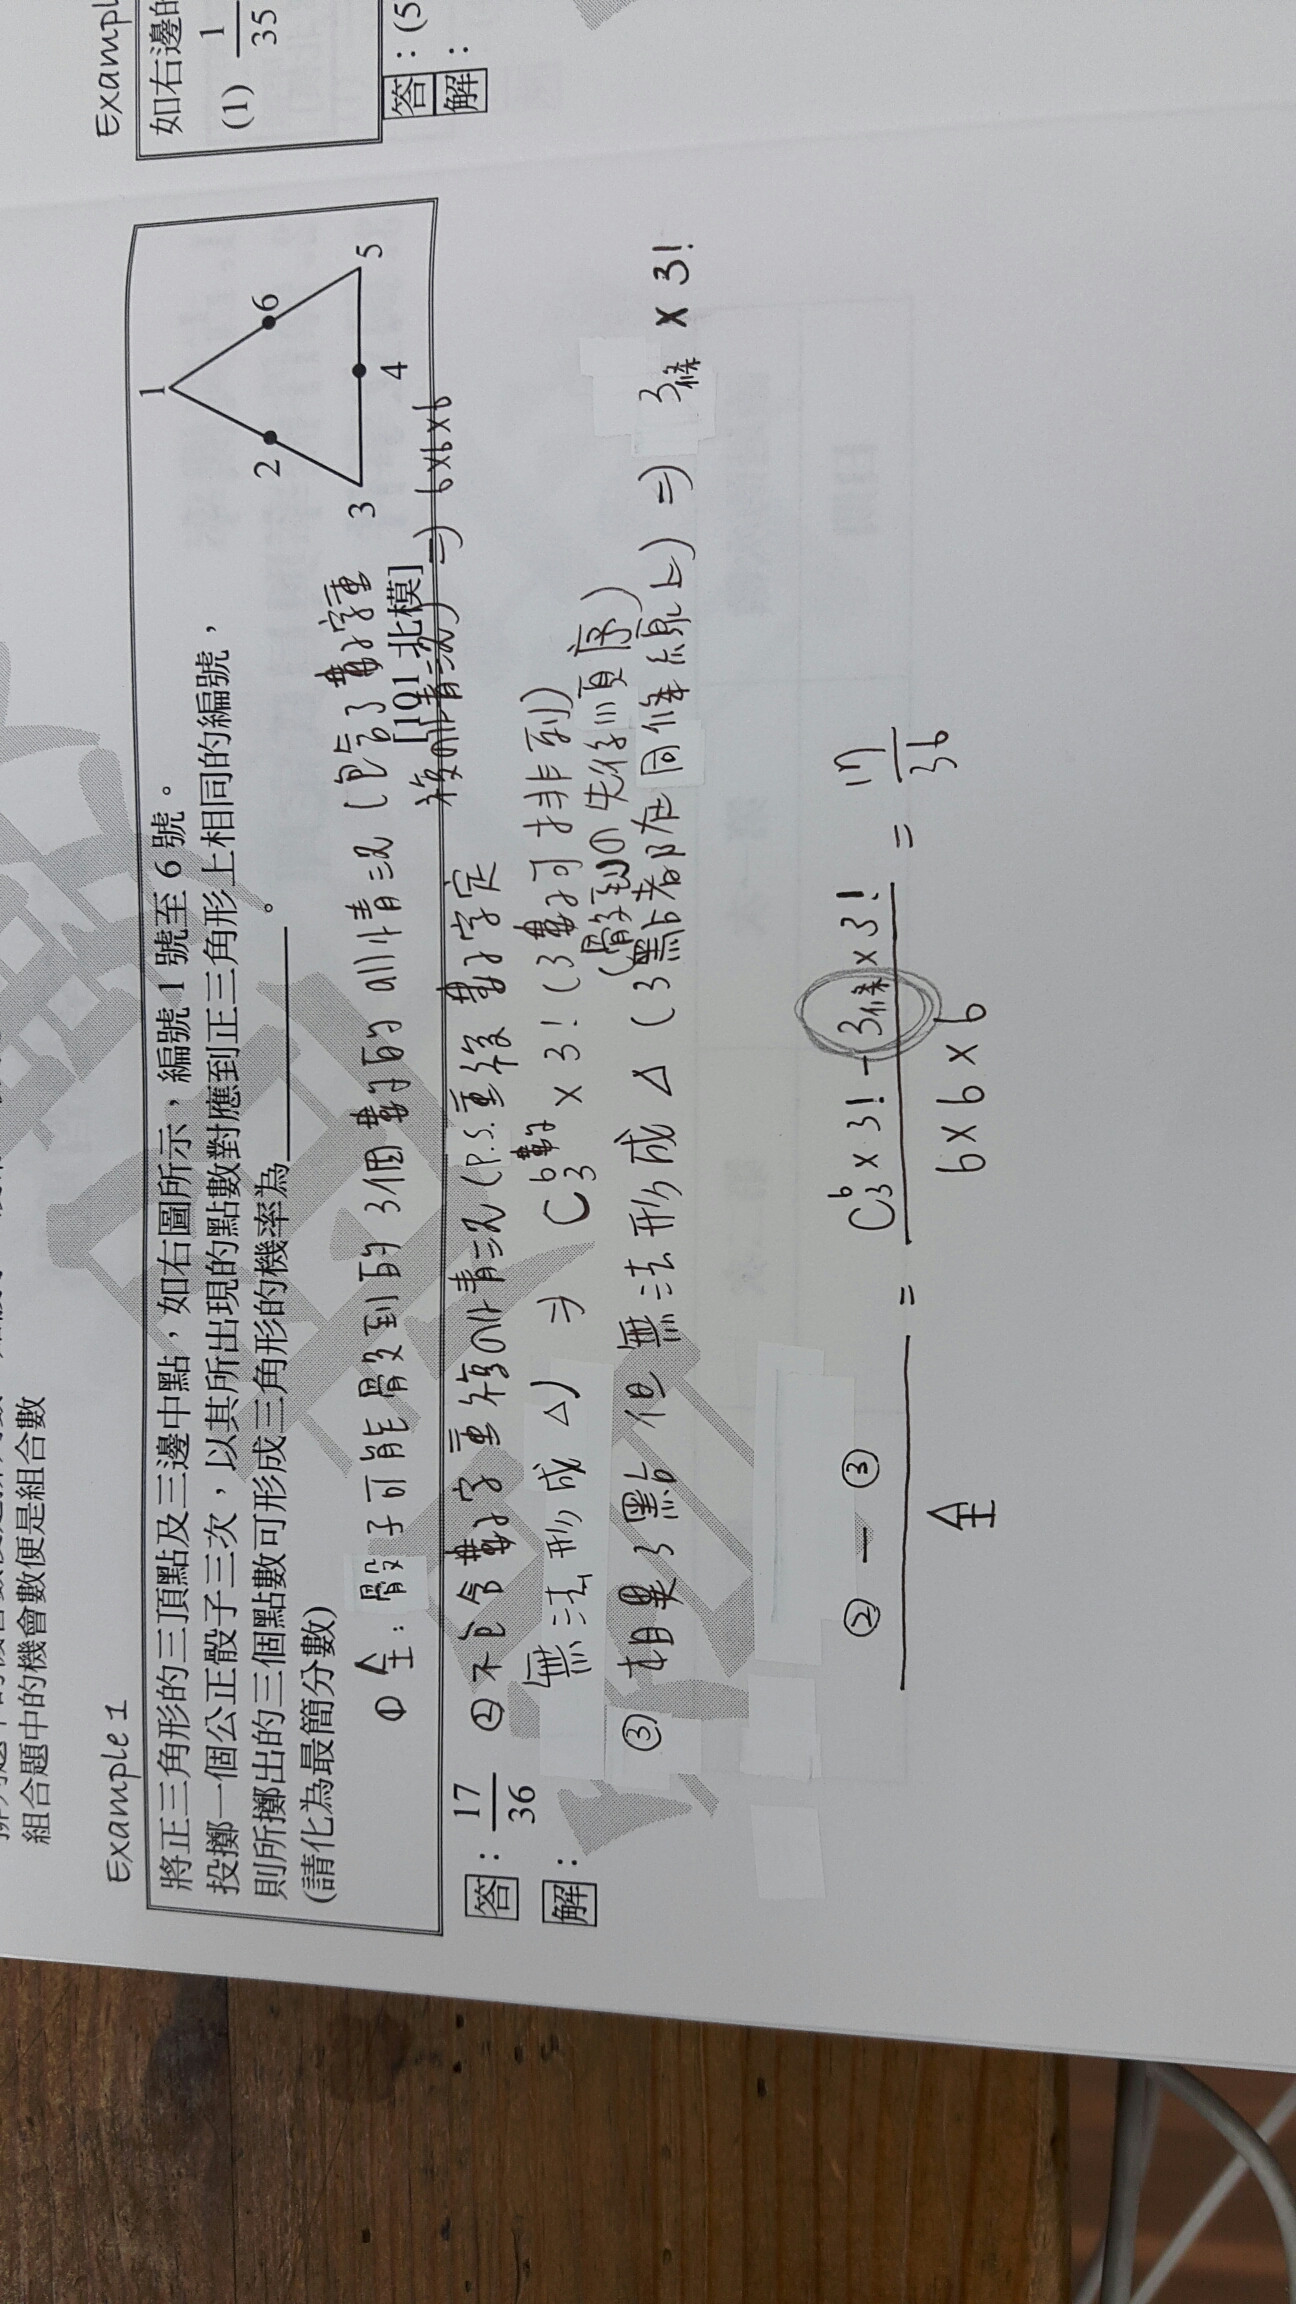 組合題中的機會數便是組合數
Example 1
將正三角形的三頂點及三邊中點,如右圖所示,編號 1 號至 6 號。
投擲一個公正骰子三次,以其所出現的點數對應到正三角形上相同的編號,
則所擲出的三個點數可形成三角形的機率為
。
(請化為最簡分數)
[101 北模]
1
2
6
3
4
5
① 全:骰子可能骰到的3個數的all情況(包含了數字重
複的情況) => 6x6x6
答:17/36
② 不包含數字重複的情況(P.S.重複數字定
無法形成△) => C⁶₃ x 3! (3數可排列)
(骰到的先後順序)
解:
③ 相異3點但無法形成△(3點都在同條線上) => 3條 x 3!
② - ③ / 全 = C⁶₃ x 3! - 3條 x 3! / 6 x 6 x 6 = 17/36
Exampl
如右邊的
(1) 1/35
答:(5
解: